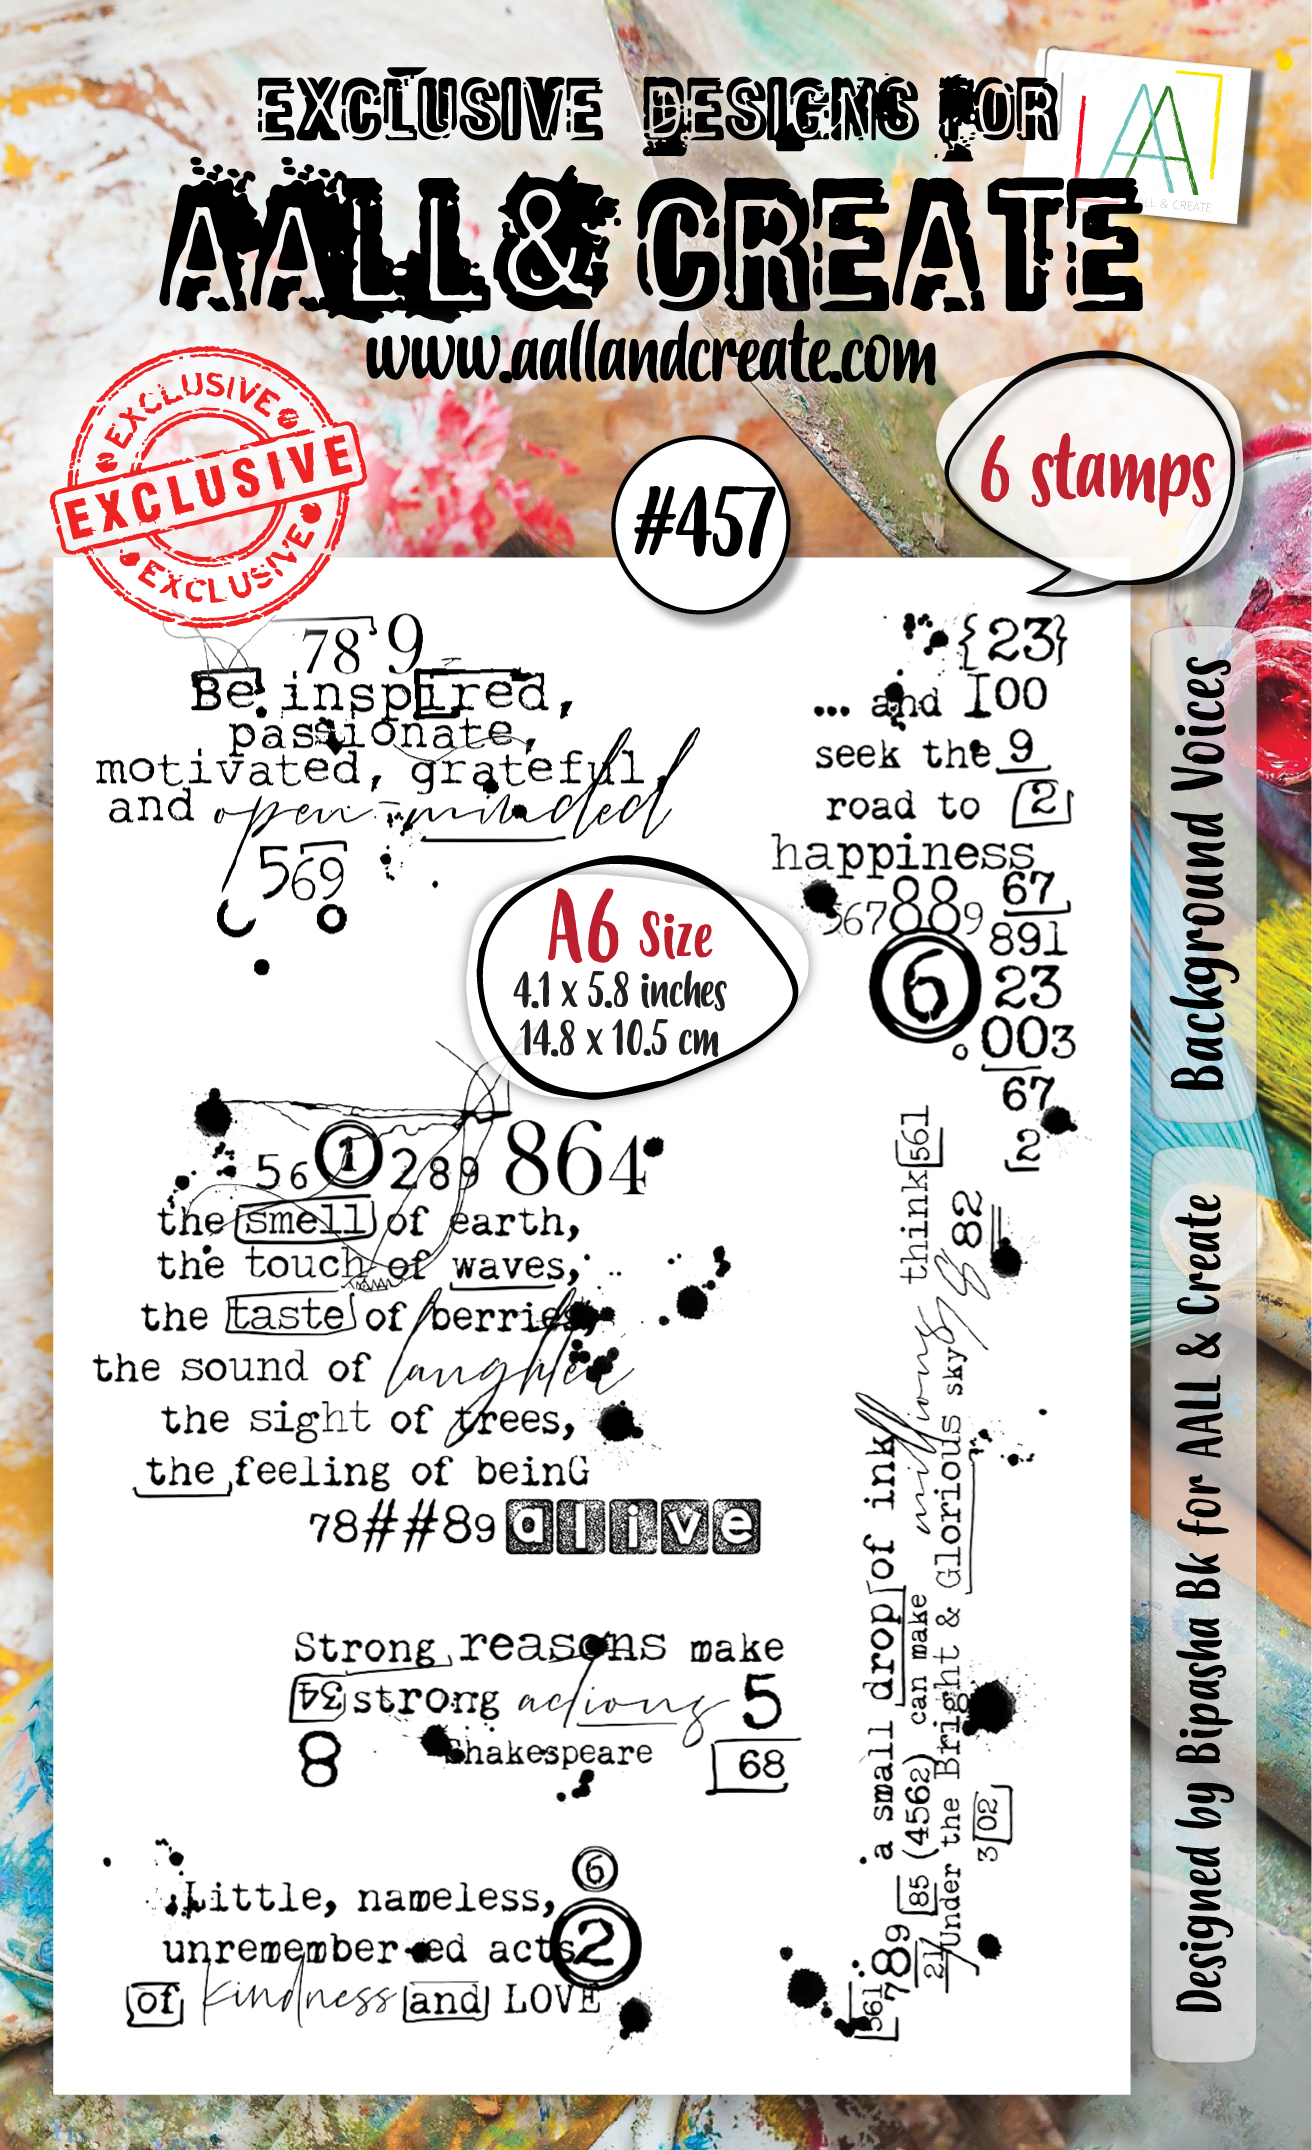 EXCLUSIVE DESIGNS FOR
AALL & CREATE
www.aallandcreate.com
AA
ALL & CREATE
EXCLUSIVE
EXCLUSIVE
EXCLUSIVE
#457
6 stamps
78 9
Be inspired,
passionate,
motivated, grateful,
and open-minded
569
A6 Size
4.1 x 5.8 inches
14.8 x 10.5 cm
{23}
... and 100
seek the 9
road to 2
happiness
67
567889
891
6 23
.003
67
2
56 1 289 864
the smell of earth,
the touch of waves,
the taste of berries,
the sound of laughter
the sight of trees,
the feeling of beinG
78##89 alive
Strong reasons make
34 strong actions 5
8 Shakespeare 68
6
Little, nameless,
unremember-ed acts 2
of kindness and LOVE
a small drop of ink
(4562) can make millions think 561
under the Bright & Glorious sky
& 82
3 02
85
21
789
561
Background Voices
Designed by Bipasha Bk for AALL & Create